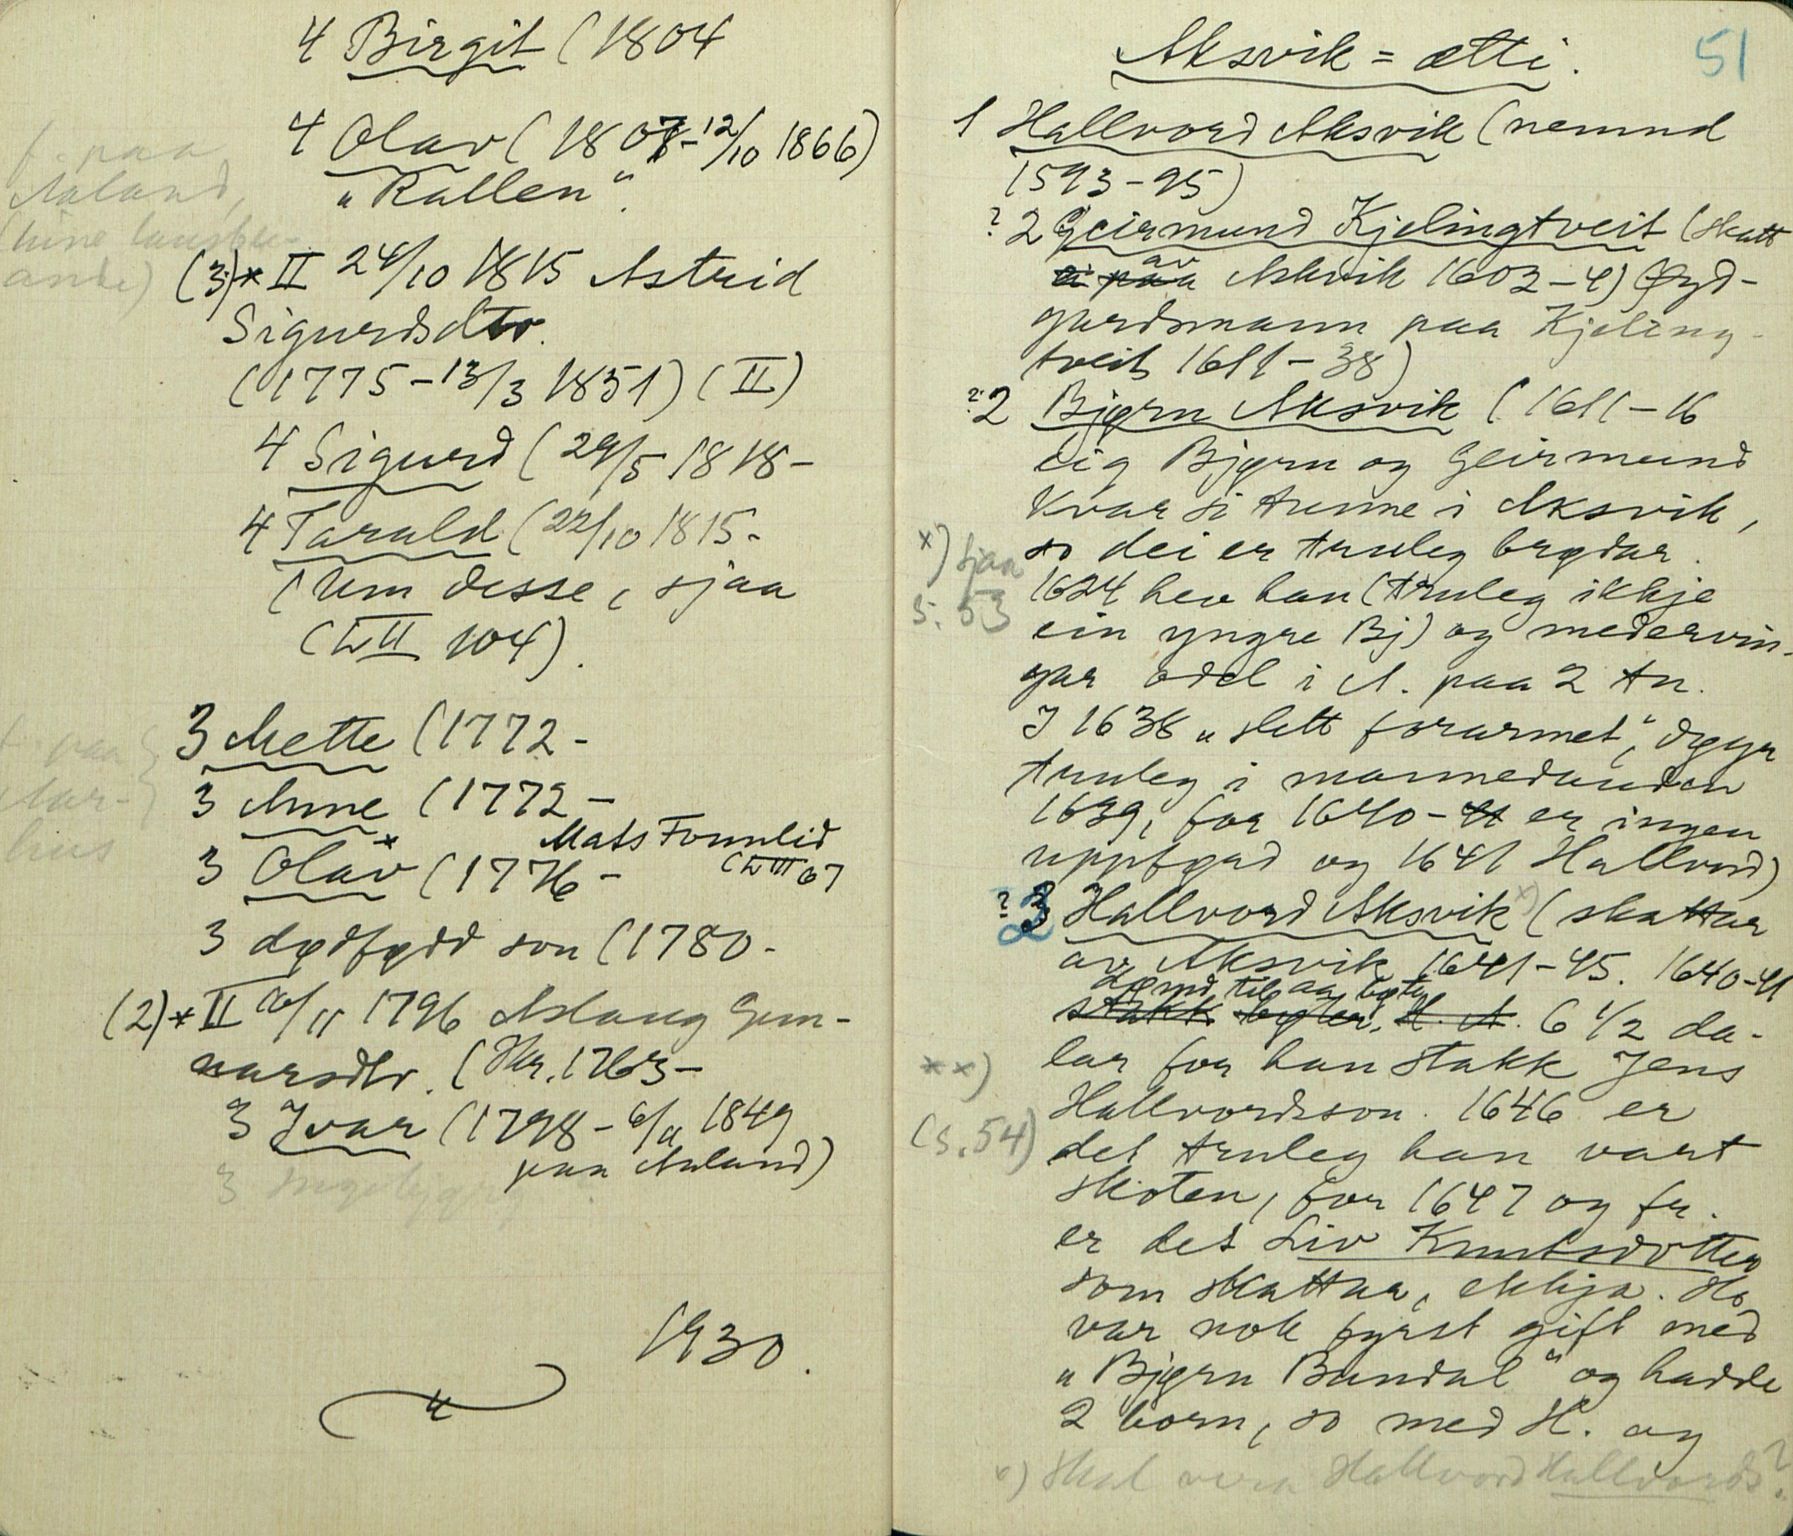 4 Birgit (1804
4 Olav (1807-12/10 1866)
"Kallen".
f. paa
Aaland,
(3)* II 24/10 1815 Astrid
Sigurdsdtr.
(1775-13/3 1851) (II)
4 Sigurd (29/5 1818-
4 Tarald (22/10 1815-
(Um desse, sjaa
(L II 104).
3 Mette (1772-
3 Anne (1772-
Mats Fonnlid
(L III 67
3 Olav* (1776-
3 dødfødd son (1780-
f. paa
Aar-
hus
(2)* II 10/11 1796 Aslaug Gun-
narsdtr. (Skr. 1763-
3 Ivar (1798-6/11 1849
paa Aaland)
3 Ingebjørg
1930.
51
Aksvik=ætti.
1 Hallvord Aksvik (nemnd
1593-95)
? 2 Geirmund Kjelingtveit (skatt
av Aksvik 1603-4) Øyd-
gardsmann paa Kjeling-
tveit 1611-38)
? 2 Bjørn Aksvik (1611-16
eig Bjørn og Geirmund
kvar si tunne i Aksvik,
so dei er truleg brødar.
x) sjaa
s. 53
1624 hev han (truleg ikkje
ein yngre Bj) og medervin-
gar odel i A. paa 2 tn.
I 1638 "slett forarmet", døyr
truleg i mannedauden
1639, for 1640-41 er ingen
uppførd og 1641 Hallvord)
? 3 Hallvord Aksvik x) (skattar
av Aksvik 1641-45. 1640-41
dømd til aa bøta
stakk bøter, H. A. 6 1/2 da-
lar for han stakk Jens
xx)
(s. 54)
Hallvordsson. 1646 er
det truleg han vart
skoten, for 1647 og fr.
er det Liv Knutsdotter
som skattar, ekkja. Ho
var nok fyrst gift med
"Bjørn Bundal" og hadde
2 born, so med H. og
x) Skal vera Hallvord Hallvords?